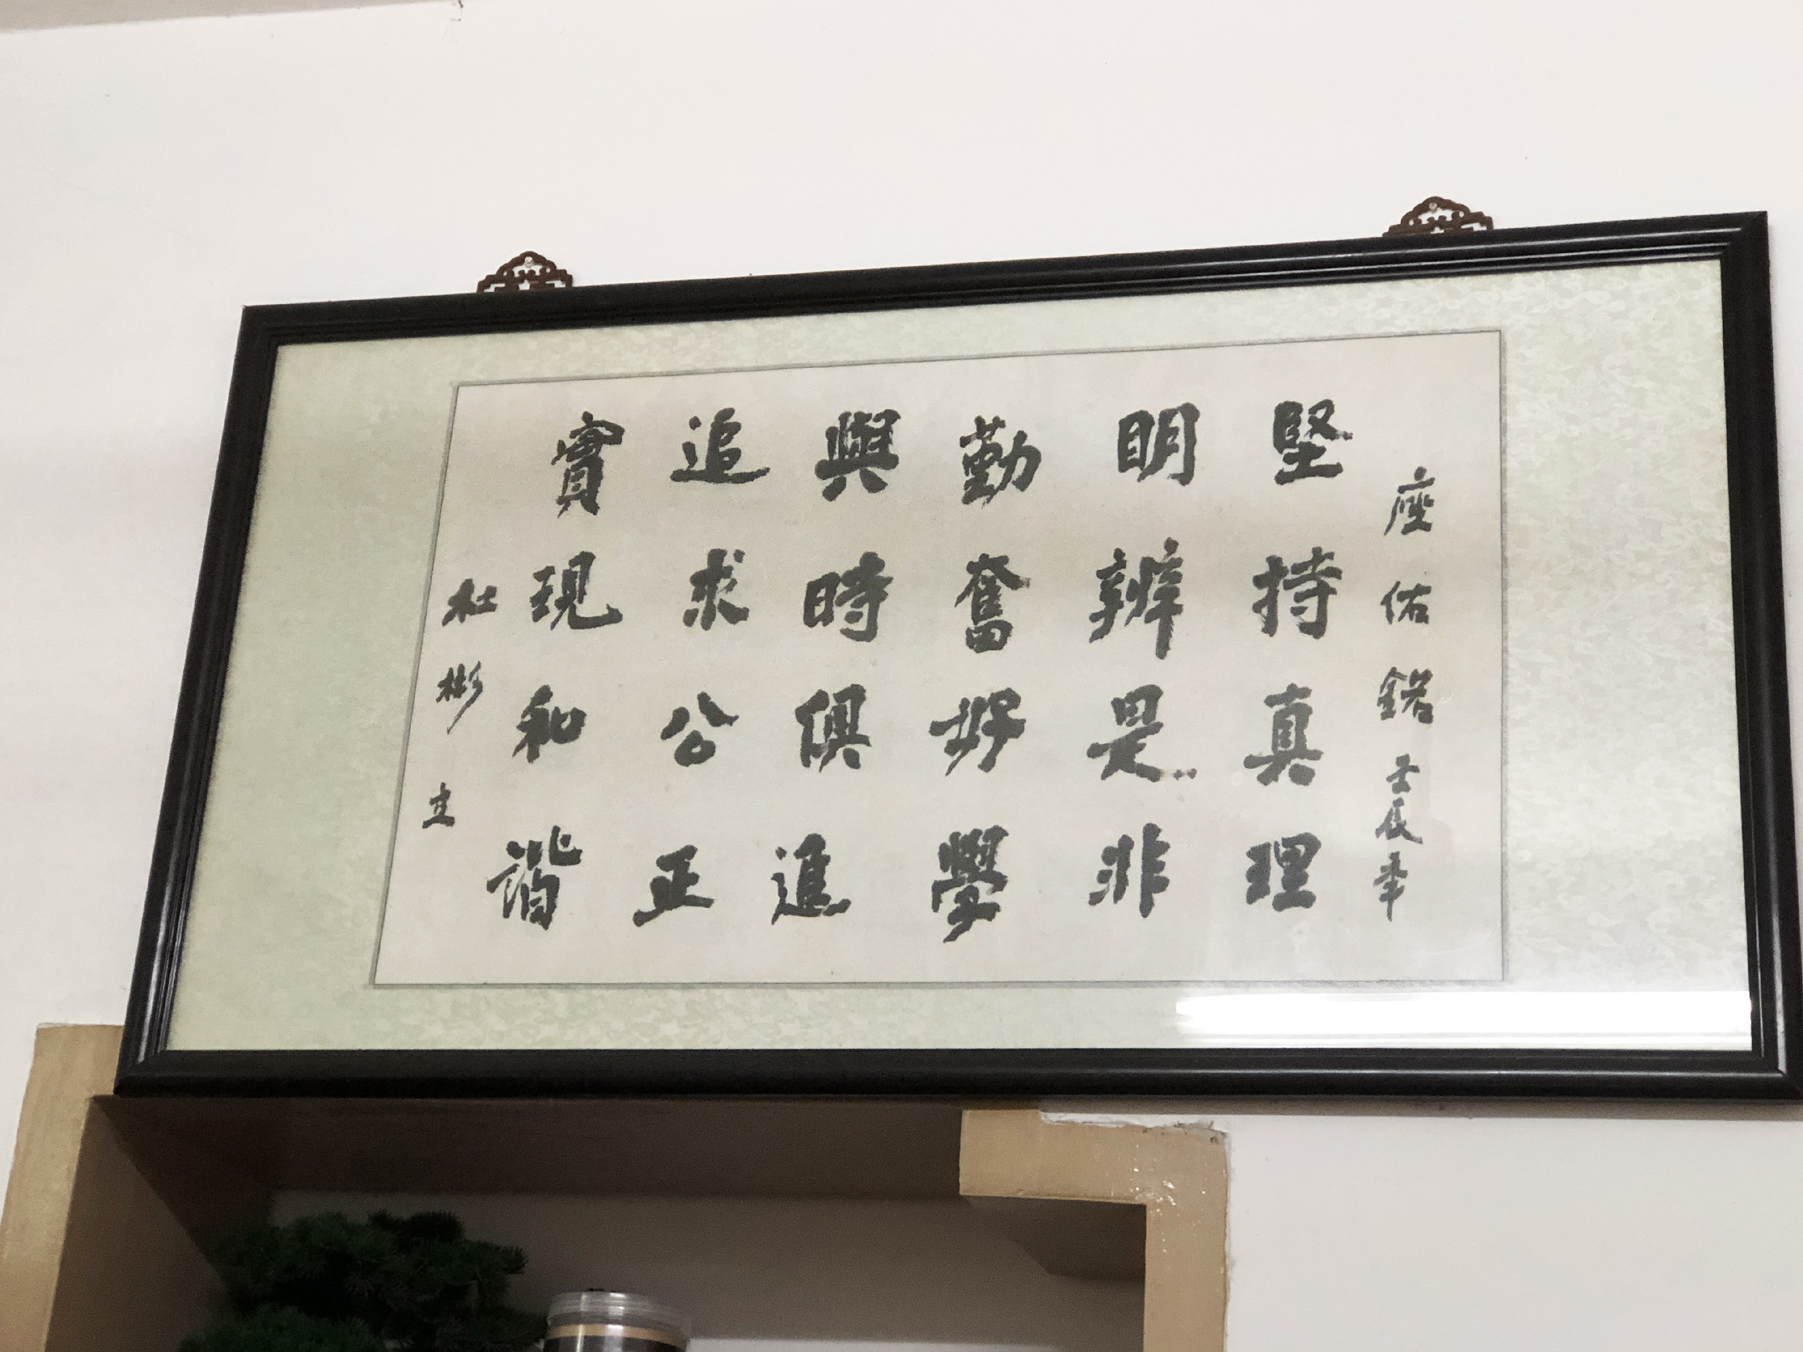 座佑銘壬辰年
堅持真理
明辨是非
勤奮好學
與時俱進
追求公正
實現和諧
杜彬立